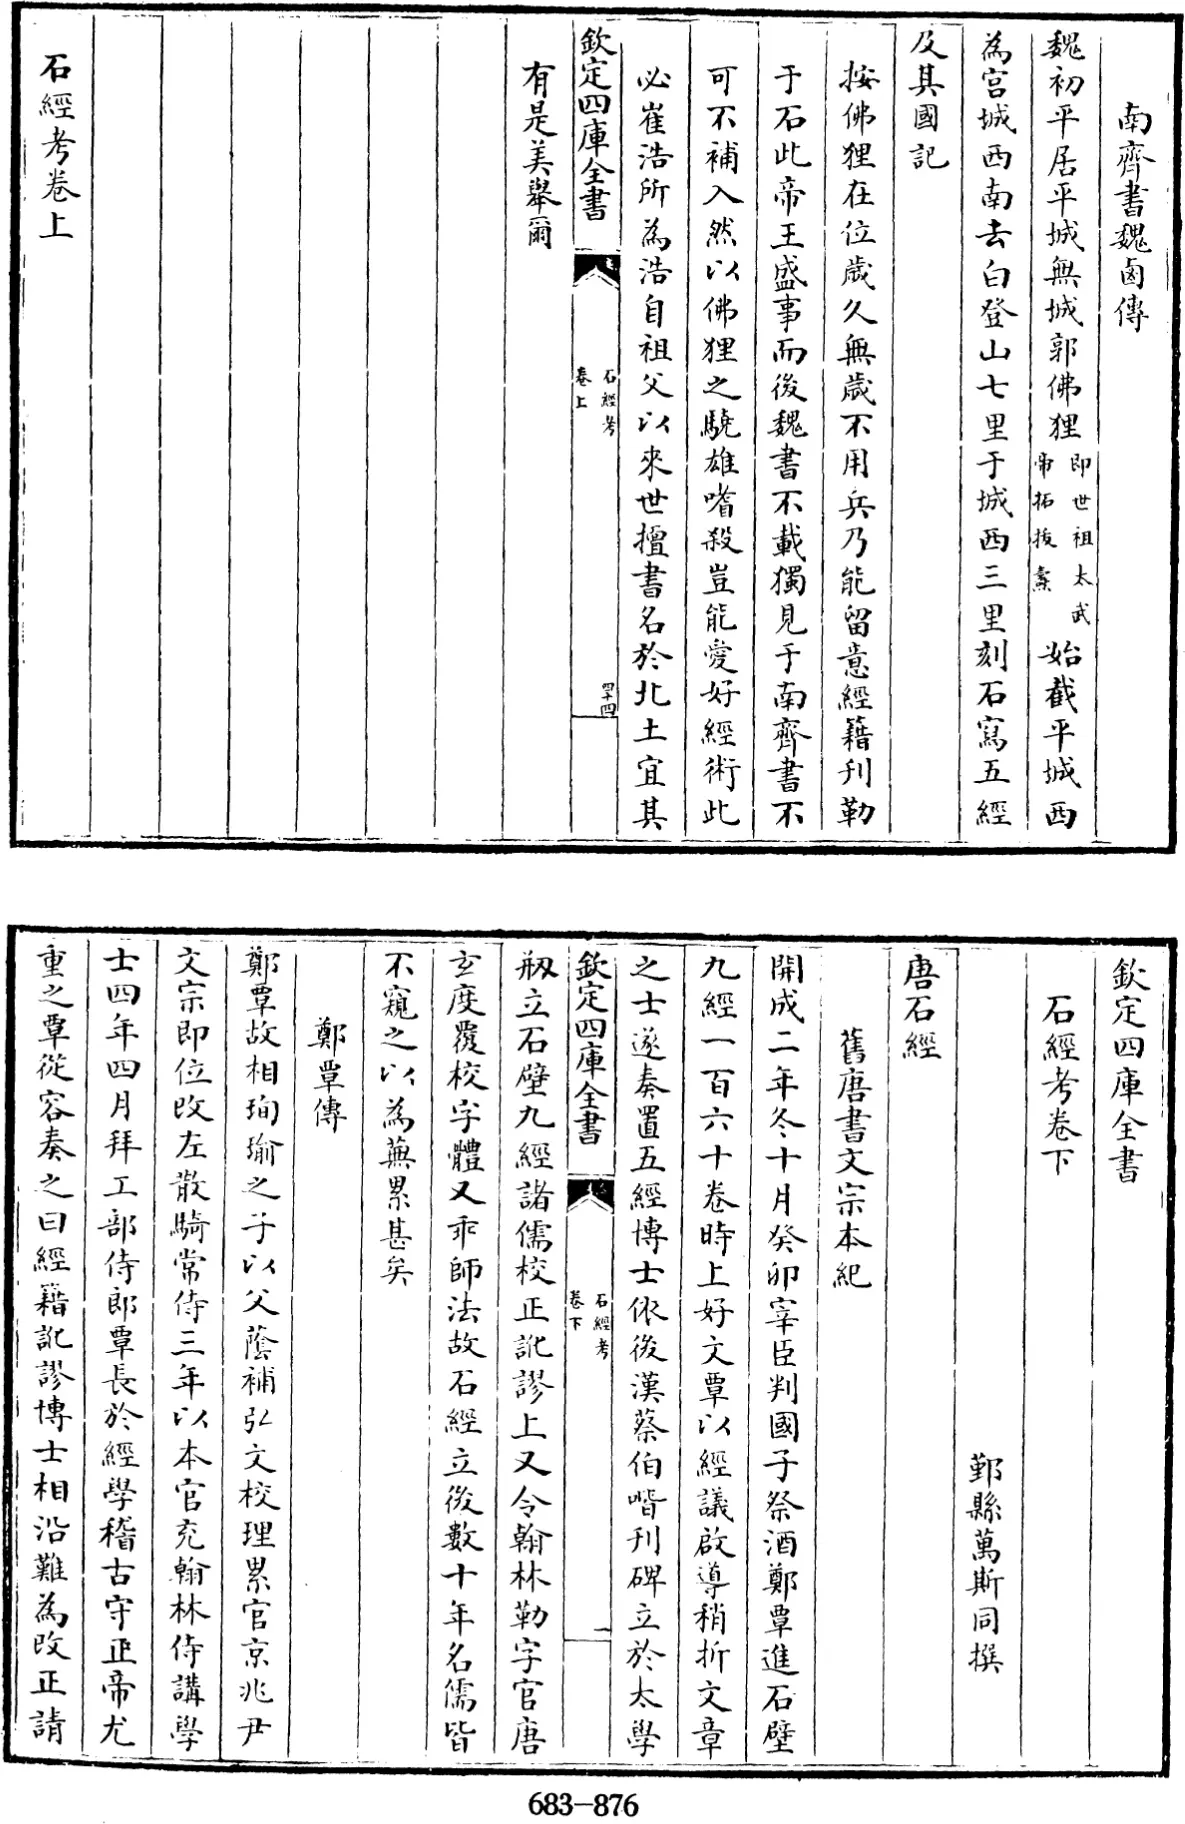 南齊書魏鹵傳
魏初平居平城無城郭佛狸即世祖太武帝拓拔燾始截平城西
為宫城西南去白登山七里于城西三里刻石寫五經
及其國記
按佛狸在位歲久無歲不用兵乃能留意經籍刋勒
于石此帝王盛事而後魏書不載獨見于南齊書不
可不補入然以佛狸之驍雄嗜殺豈能愛好經術此
必崔浩所為浩自祖父以來世擅書名於北土宜其
欽定四庫全書
石經考
卷上
四十四
有是美舉爾
石經考卷上
欽定四庫全書
石經考卷下
鄞縣萬斯同撰
唐石經
舊唐書文宗本紀
開成二年冬十月癸卯宰臣判國子祭酒鄭覃進石壁
九經一百六十卷時上好文覃以經議啟導稍折文章
之士遂奏置五經博士依後漢蔡伯喈刋碑立於太學
欽定四庫全書
石經考
卷下
一
剏立石壁九經諸儒校正訛謬上又令翰林勒字官唐
玄度覆校字體又乖師法故石經立後數十年名儒皆
不窺之以為蕪累甚矣
鄭覃傳
鄭覃故相珣瑜之子以父蔭補弘文校理累官京兆尹
文宗即位改左散騎常侍三年以本官充翰林侍講學
士四年四月拜工部侍郎覃長於經學稽古守正帝尤
重之覃從容奏之曰經籍訛謬博士相沿難為改正請
683-876